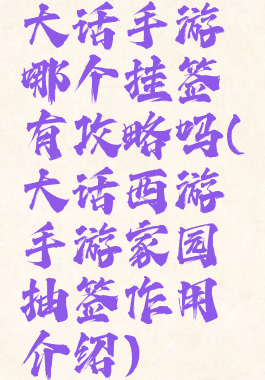 大话手游
哪个挂签
有攻略吗(
大话西游
手游家园
抽签作用
介绍)